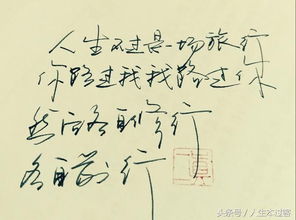 人生不过是一场旅行
你路过我我路过你
然后各自修行
各自前行
头条号//生本过客